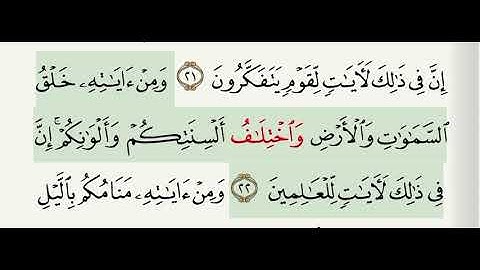 إِنَّ فِي ذَٰلِكَ لَءَايَٰتٖ لِّقَوۡمٖ يَتَفَكَّرُونَ ٢١ وَمِنۡ ءَايَٰتِهِۦ خَلۡقُ
ٱلسَّمَٰوَٰتِ وَٱلۡأَرۡضِ وَٱخۡتِلَٰفُ أَلۡسِنَتِكُمۡ وَأَلۡوَٰنِكُمۡۚ إِنَّ
فِي ذَٰلِكَ لَأٓيَٰتٖ لِّلۡعَٰلِمِينَ ٢٢ وَمِنۡ ءَايَٰتِهِۦ مَنَامُكُم بِٱلَّيۡلِ